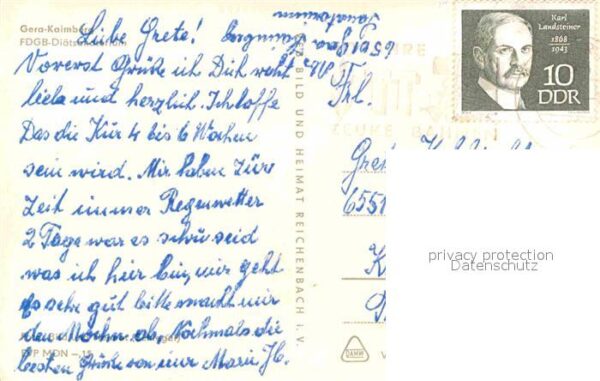 Gera-Kaimberg
FDGB-Diätsanatorium
Liebe Grete!
Vorerst Grüße ich Dich recht
liela und herzlich Ich hoffe
Das die Kur 4 bis 6 Wochen
sein wird. Mir haben Zürr
Zeit immer Regenwetter
2 Tage war es schön seid
was ich hier bin, mir geht
es sehr gut bitte macht mir
den Mochn ab, Nochmals die
besten Grüße von mir Marie H.
Abs.
6501 Gera
Kaimberg
Sanatorium
BILD UND HEIMAT REICHENBACH i. V.
Karl
Landsteiner
1868
1943
10
DDR
Frl.
6551
privacy protection
Datenschutz
EVP MDN
V